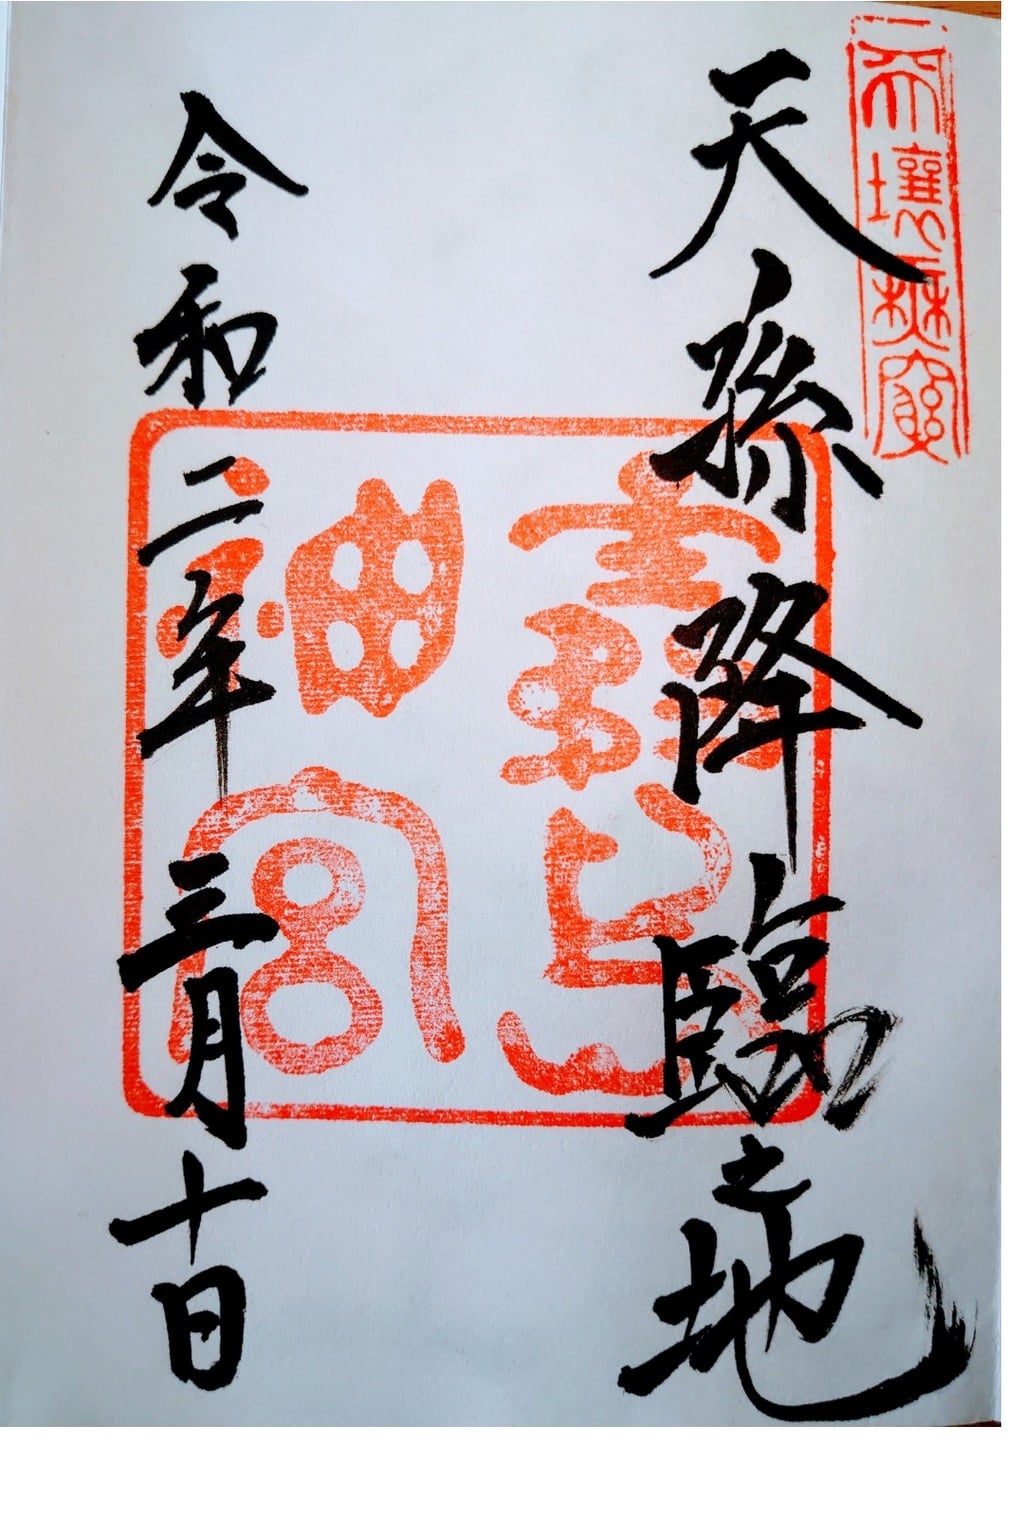 天壤無窮
天孫降臨之地
霧島
神宮
令和二年三月十日